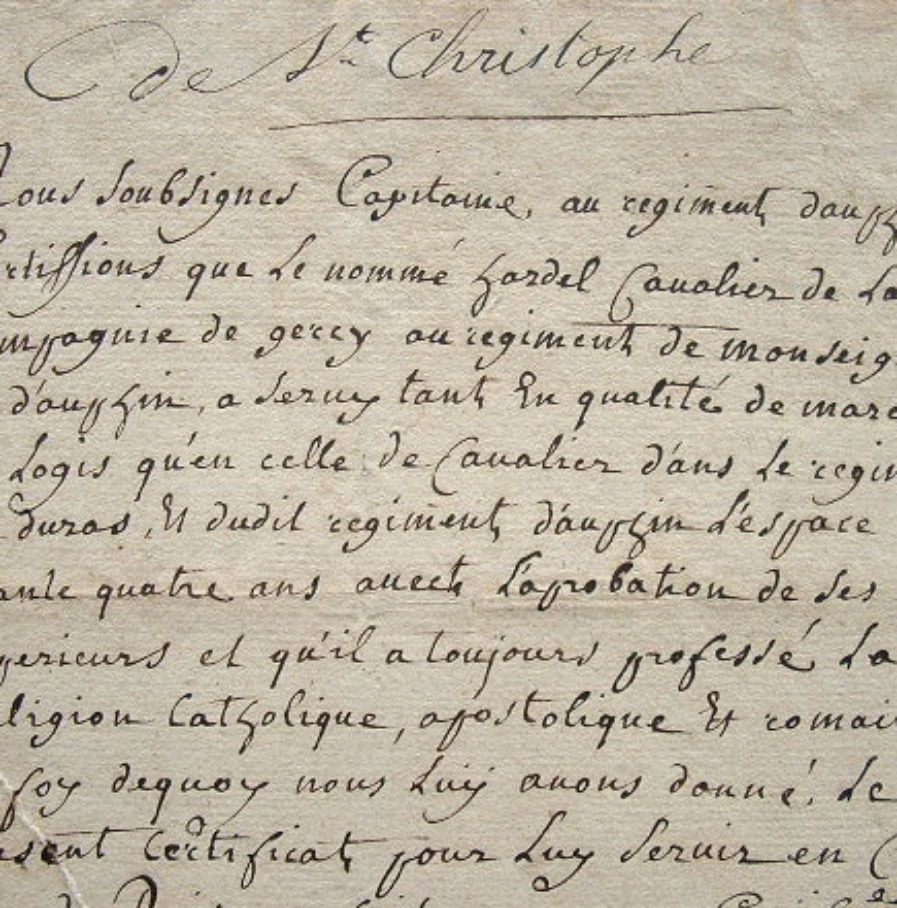 de St. Christophe
Nous soubsignes Capitaine, au regiment dauph
ertiffions que Le nommé hardel Cavalier de La
ompagnie de gercy au regiment de monseig
d'auphin, a seruy tant En qualité de mare
Logis qu'en celle de Cavalier d'ans Le regim
duras, Et dudit regiment d'auphin L'espace
ante quatre ans auect L'aprobation de ses
perieurs et qu'il a toujours professé La
eligion Catholique, apostolique Et romain
foy dequoy nous Luy auons donné, Le
esent Certificat pour Luy seruir en